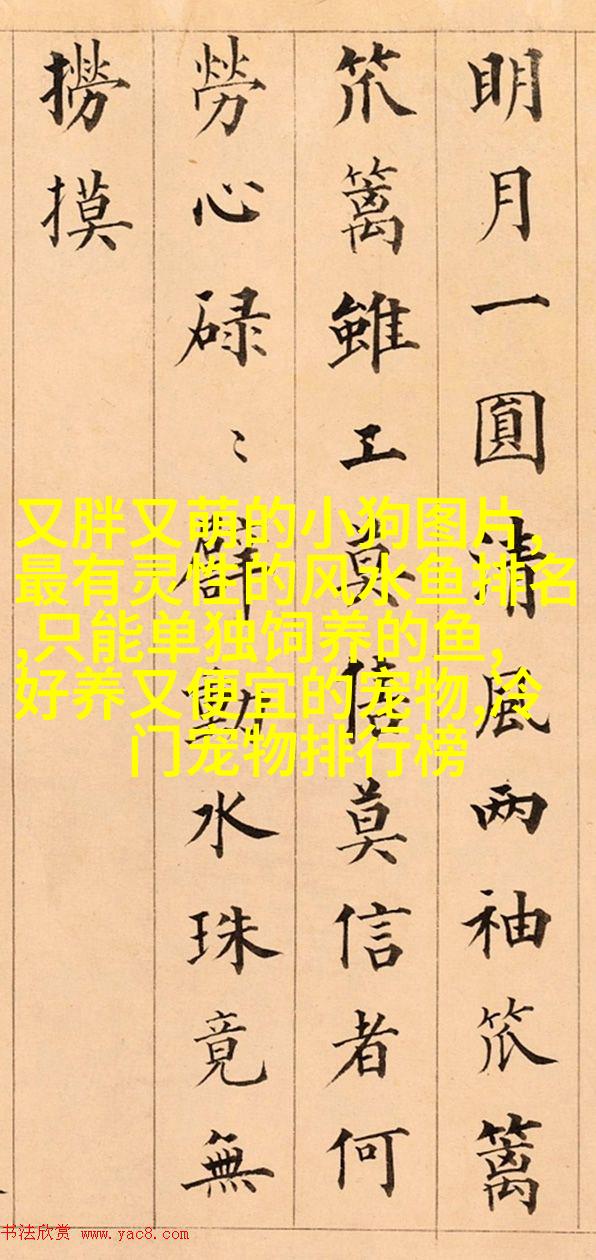 明月一圓清風两袖笊篱
笊篱雖工莫信莫信者何
勞心碌〻動水珠竟無
撈摸
又胖又萌的小狗图片,
最有灵性的风水鱼排名
,只能单独饲养的鱼,
好养又便宜的宠物,冷
门宠物排行榜
书法欣赏 www.yac8.com